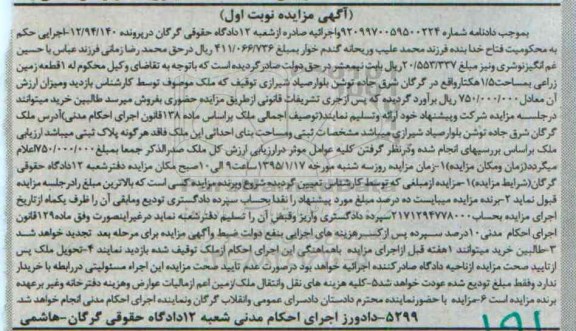 (آگهی مزایده نوبت اول)
بموجب دادنامه شماره ۹۲۰۹۹۷۰۰۵۹۵۰۰۲۲۴ واجرائیه صادره از شعبه ۱۲دادگاه حقوقی گرگان درپرونده ۱۲/۹۴/۱۴۰-اجرایی حکم
به محکومیت فتاح خدا بنده فرزند محمد علیب وریحانه گندم خوار بمبلغ ۴۱۱/۰۶۶/۷۳۶ ریال درحق محمد رضا زمانی فرزند عباس با حسین
غم انگیزنوشری ونیز مبلغ ۲۰/۵۵۳/۳۳۷ریال بابت نیمعشر در حق دولت صادر گردیده است که باتوجه به تقاضای وکیل محکوم له ۱قطعه زمین
زراعی بمساحت۱/۵هکتارواقع در گرگان شرق جاده توشن بلوارصیاد شیرازی توقیف که ملک موصوف توسط کارشناس بازدید ومیزان ارزش
آن معادل ۷۵۰/۰۰۰/۰۰۰ ریال برآورد گردیده که پس ازجری تشریفات قانونی ازطریق مزایده حضوری بفروش میرسد طالبین خرید میتوانند
درجلسه مزایده شرکت وپیشنهاد خود ارائه وتسلیم نمایند(توصیف اجمالی ملک براساس ماده ۱۳۸قانون اجرای احکام مدنی)آدرس ملک
گرگان شرق جاده توشن بلوارصیاد شیرازی میباشد مشخصات ثبتی ومساحت بنای احداثی این ملک فاقد هرگونه پلاک ثبتی میباشد ارزیابی
ملک براساس بررسیهای انجام شده ودرنظر گرفتن کلیه عوامل موثر درارزیابی ارزش کل ملک صدرالذکر جمعا بمبلغ۷۵۰/۰۰۰/۰۰۰اعلام
میگردد(زمان ومکان مزایده)۱-زمان مزایده روزسه شنبه مورخه ۱۳۹۵/۱/۱۷ ساعت۹ الی ۱۰صبح مکان مزایده دفترشعبه ۱۲دادگاه حقوقی
گرگان(شرایط مزایده)۱-مزایده ازمبلغی که توسط کارشناس تعیین گردیده شروع وبرنده مزایده کسی است که بالاترین مبلغ رادرجلسه مزایده
قبول نماید ۲-برنده مزایده میبایست ده درصد مبلغ مورد پیشنهاد را نقدا بحساب سپرده دادگستری تودیع ومابقی آن را ظرف یکماه ازتاریخ
اجرای مزایده بحساب۲۱۷۱۲۹۴۷۷۸۰۰۰سپرده دادگستری واریز وقبض آن را تسلیم دفترشعبه نماید درغیراینصورت وفق ماده۱۲۹قانون
اجرای احکام مدنی۱۰درصد سپرده پس ازکسرهزینه های اجرایی بنفع دولت ضبط وآگهی مزایده برای مرحله بعد تجدید خواهد شد
۳-طالبین خرید میتوانند ۱هفته قبل ازاجرای مزایده باهماهنگی این اجرای احکام ازملک توقیف شده بازدید نمایند ۴-تحویل ملک پس
ازتایید صحت مزایده ازناحیه دادگاه صادرکننده اجرائیه خواهد بود درصورت عدم تایید صحت مزایده این اجراء مسئولیتی دررابطه با خریدار
ندارد وفقط مبلغ تودیع شده عودت خواهد شد۵-کلیه هزینه های نقل وانتقال ملک ازمین اعم ازمالیات عوارض وهزینه دفترخانه وغیر برعهده
برنده مزایده است ۶-مزایده با حضورنماینده محترم دادستان دادسرای عمومی وانقلاب گرگان ونماینده اجرای احکام مدنی انجام خواهد شد.
۵۲۹۹-دادورز اجرای احکام مدنی شعبه ۱۲دادگاه حقوقی گرگان-هاشمی